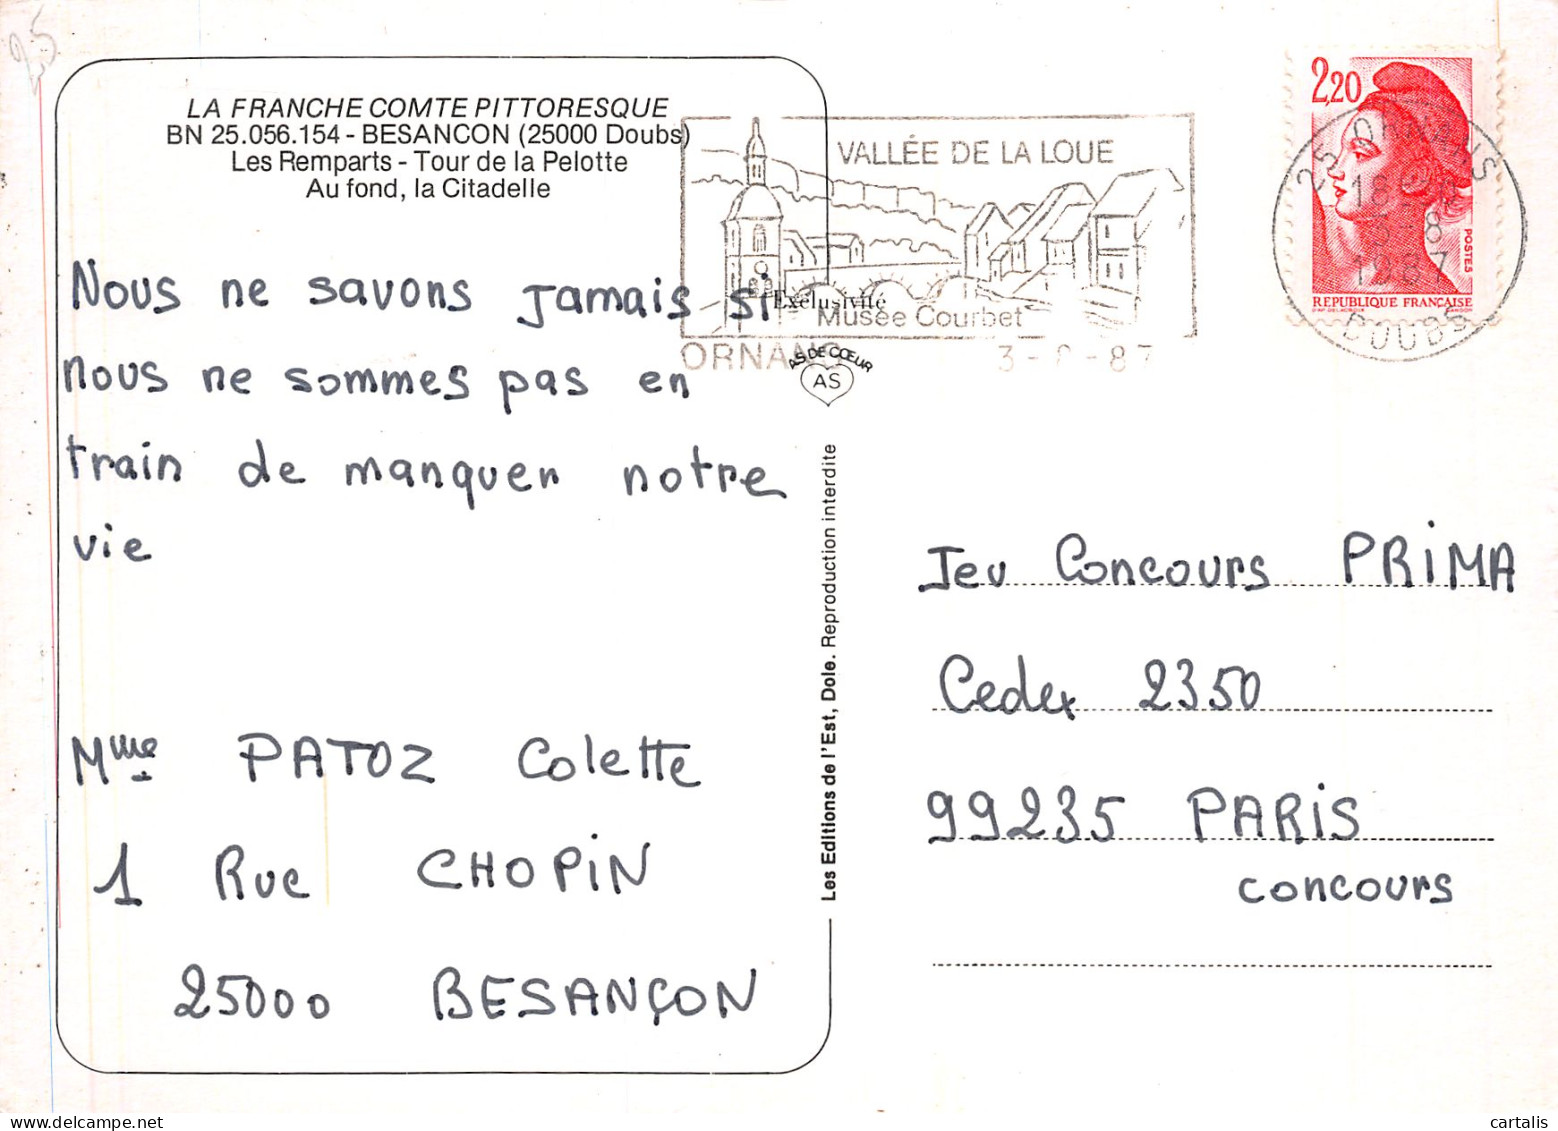 25
LA FRANCHE COMTE PITTORESQUE
BN 25.056.154 - BESANCON (25000 Doubs)
Les Remparts - Tour de la Pelotte
Au fond, la Citadelle
Nous ne savons jamais si
nous ne sommes pas en
train de manquer notre
vie
Mme PATOZ Colette
1 Rue CHOPIN
25000 BESANÇON
VALLÉE DE LA LOUE
Exclusivité
Musée Courbet
ORNANS
AS DE CŒUR
AS
Les Editions de l'Est, Dole. Reproduction interdite
2,20
POSTES
REPUBLIQUE FRANÇAISE
25 ORNANS
1987
DOUBS
Jeu Concours PRIMA
Cedex 2350
99235 PARIS
concours
cartalis